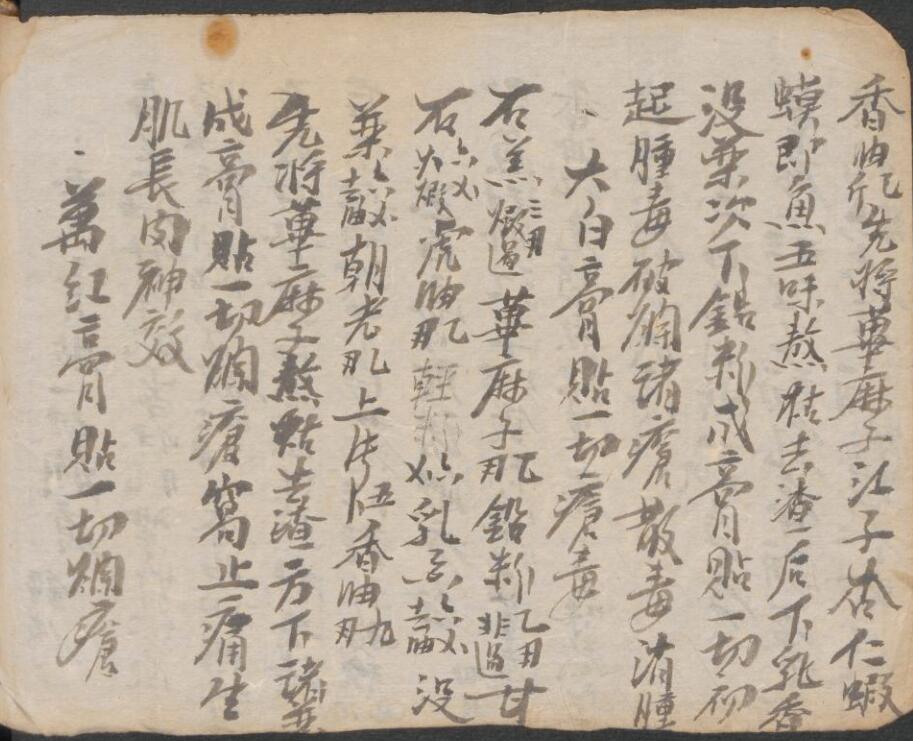 香油斤先將萆麻子江子杏仁蝦
蟆即魚五味熬枯去渣后下乳香
没藥次下鉛粉成膏貼一切初
起腫毒破爛諸瘡散毒消腫
大白膏貼一切瘡毒
石羔煆過三刄萆麻子鉛粉乙刄甘
石煆虎油輕粉乳香没
藥朝老上片香油
先將萆麻子熬枯去渣方下諸藥
成膏貼一切爛瘡窩止痛生
肌長肉神效
萬紅膏貼一切爛瘡